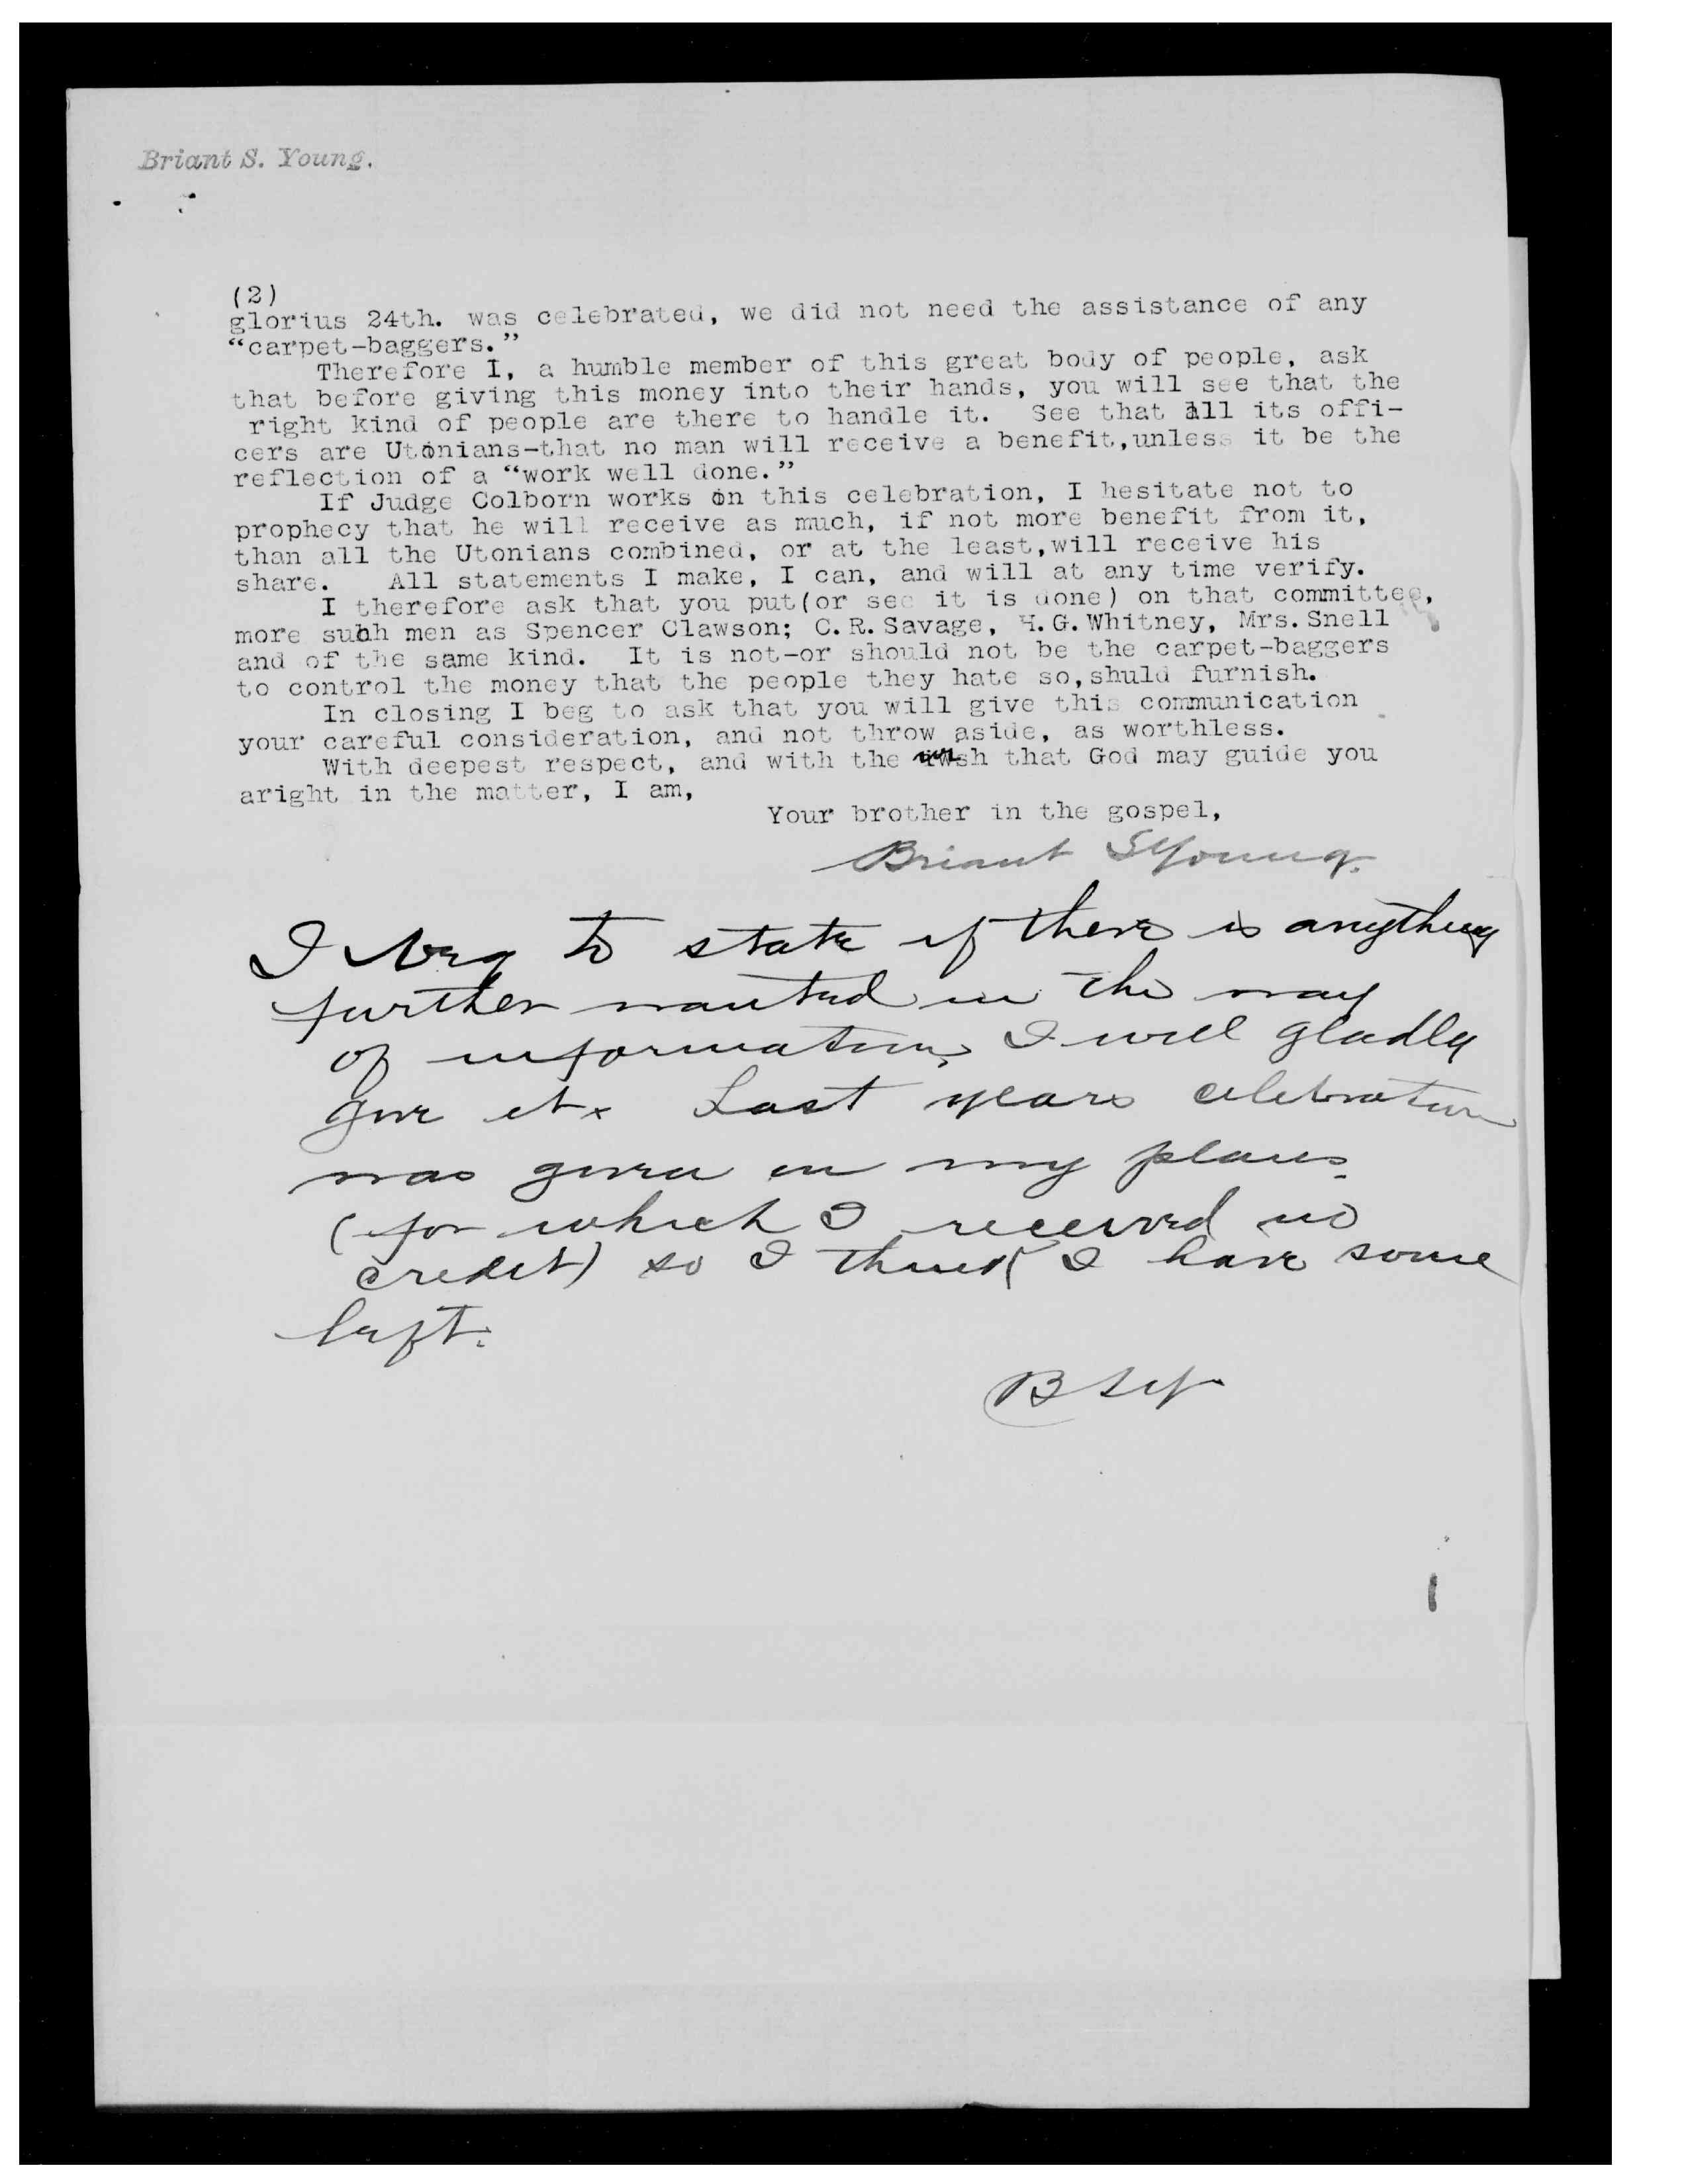 Briant S. Young.
(2)
glorius 24th. was celebrated, we did not need the assistance of any
“carpet-baggers.”
Therefore I, a humble member of this great body of people, ask
that before giving this money into their hands, you will see that the
right kind of people are there to handle it. See that all its offi-
cers are Utonians-that no man will receive a benefit,unless it be the
reflection of a “work well done.”
If Judge Colborn works on this celebration, I hesitate not to
prophecy that he will receive as much, if not more benefit from it,
than all the Utonians combined, or at the least,will receive his
share. All statements I make, I can, and will at any time verify.
I therefore ask that you put(or see it is done) on that committee,
more suhh men as Spencer Clawson; C.R.Savage, H.G.Whitney, Mrs.Snell
and of the same kind. It is not-or should not be the carpet-baggers
to control the money that the people they hate so,shuld furnish.
In closing I beg to ask that you will give this communication
your careful consideration, and not throw aside, as worthless.
With deepest respect, and with the wish that God may guide you
aright in the matter, I am,
Your brother in the gospel,
Briant S Young.
I beg to state if there is anything
further wanted in the way
of information, I will gladly
give it. Last years celebration
was given on my plans
(for which I received no
credit) so I think I have some
left.
BSY